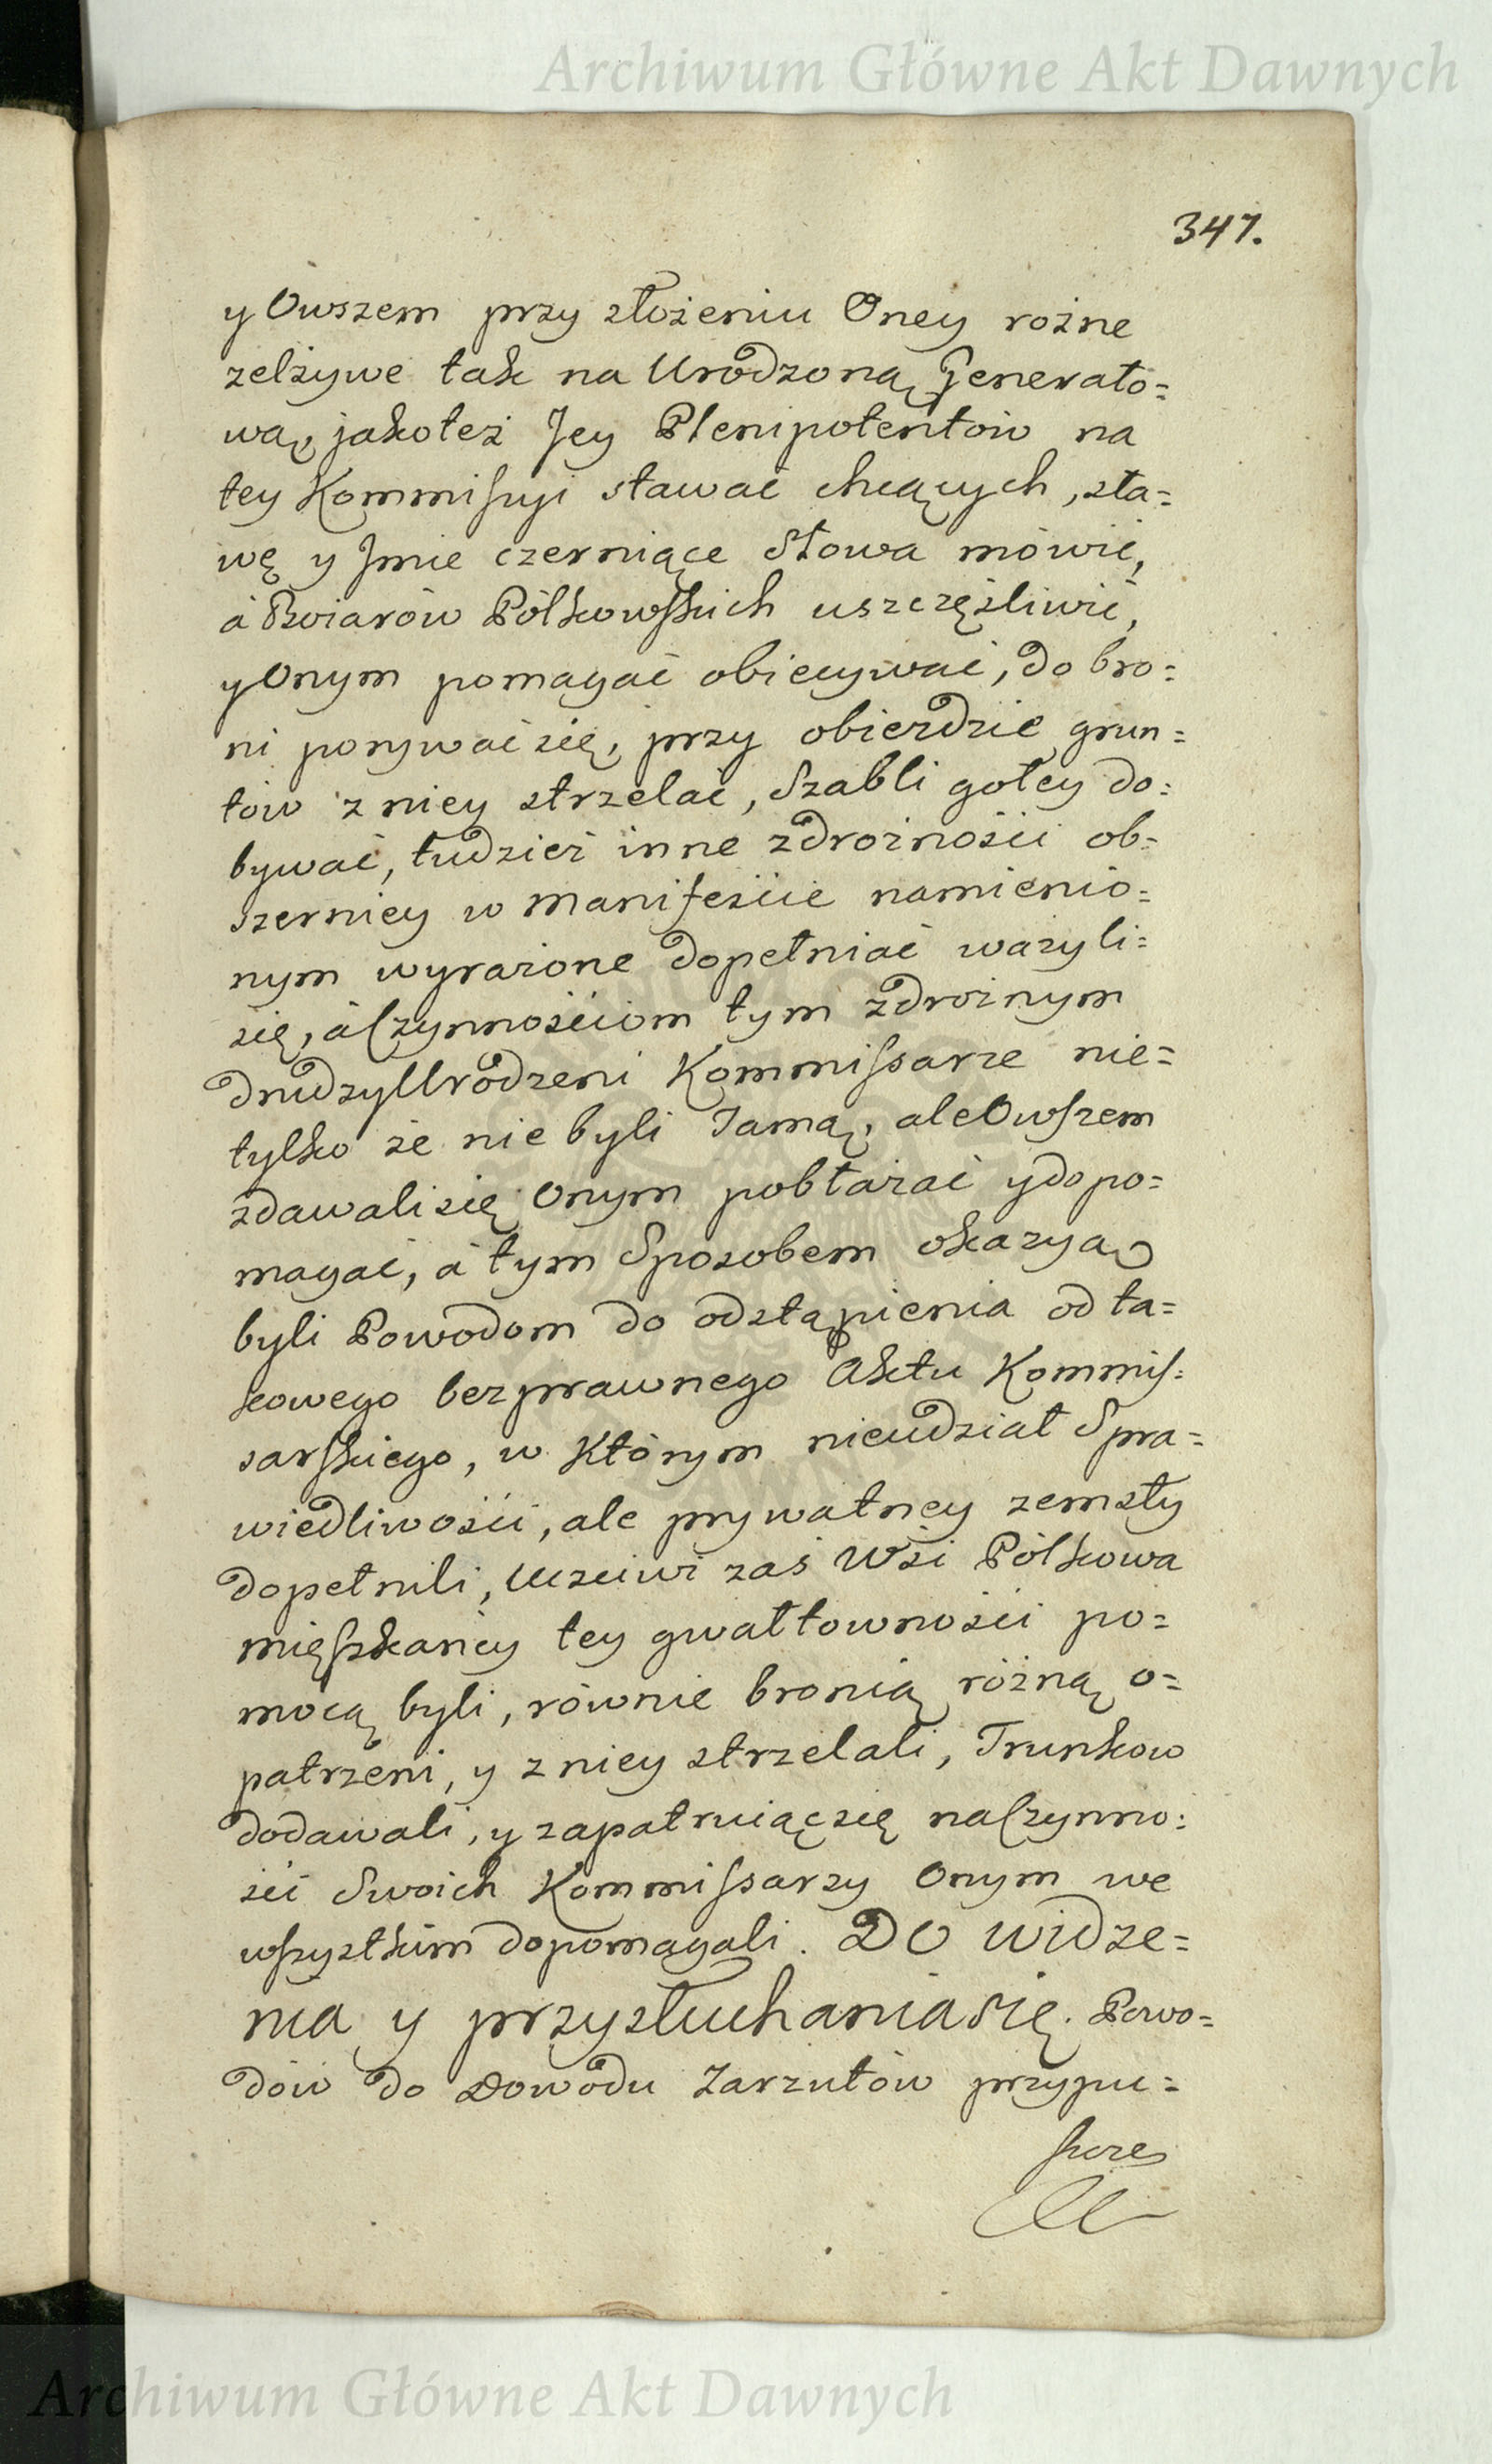 Archiwum Główne Akt Dawnych
347.
y Owszem przy złożeniu Oney rożne
zelżywe tak na Urodzoną Generało=
wą, jakoteż Jey Plenipotentów na
tey Kommissyi stawać chcących, sła=
wę y Jmie czerniące Słowa mówić,
á Boiarów Pólkowskich uszczęśliwić,
y Onym pomagać obiecywać, do bro=
ni porywać się, przy obieździe grun=
tów z niey strzelać, Szabli gołey do=
bywać, tudzież inne zdrożności ob=
szerniey w Manifeście namienio=
nym wyrażone dopełniać ważyli=
się, á Czynnościom tym zdrożnym
drudzy Urodzeni Kommissarze nie=
tylko że nie byli Tamą, ale Owszem
zdawali się Onym pobłażać y dopo=
magać, á tym Sposobem okazyą
byli Powodom do odstąpienia od ta=
kowego bezprawnego Aktu Kommis=
sarskiego, w Którym nieudział Spra=
wiedliwości, ale prywatney zemsty
dopełnili, Uczciwi zaś Wsi Pólkowa
mięszkańcy tey gwałtowności po=
mocą byli, równie bronią różną o=
patrzeni, y z niey strzelali, Trunkow
dodawali, y zapatruiąc się na Czynno=
ści Swoich Kommissarzy Onym we
wszystkim dopomagali. DO widze=
nia y przysłuchania się. Powo=
dów do Dowodu Zarzutów przypu=
szcze
Archiwum Główne Akt Dawnych